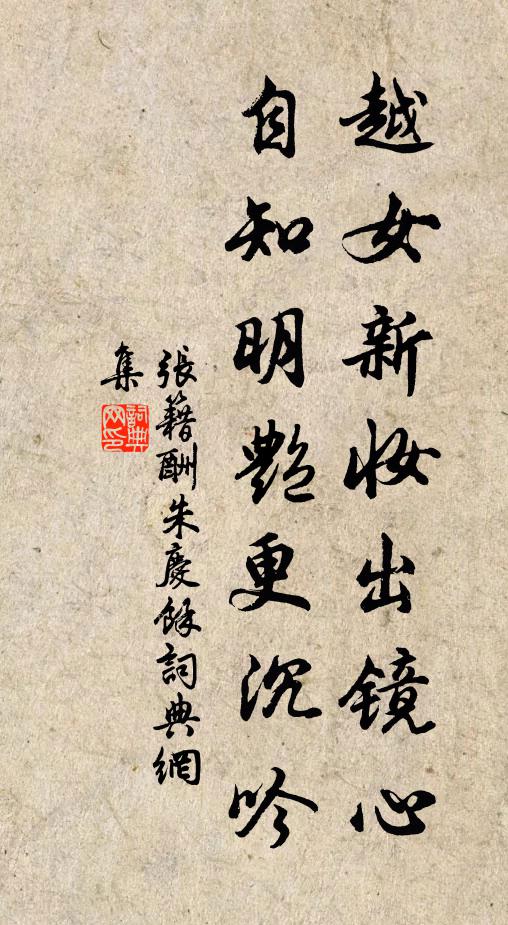 越女新妆出镜心
自知明艷更沉吟
張籍酬朱慶餘詞典網
集
詞典
网印